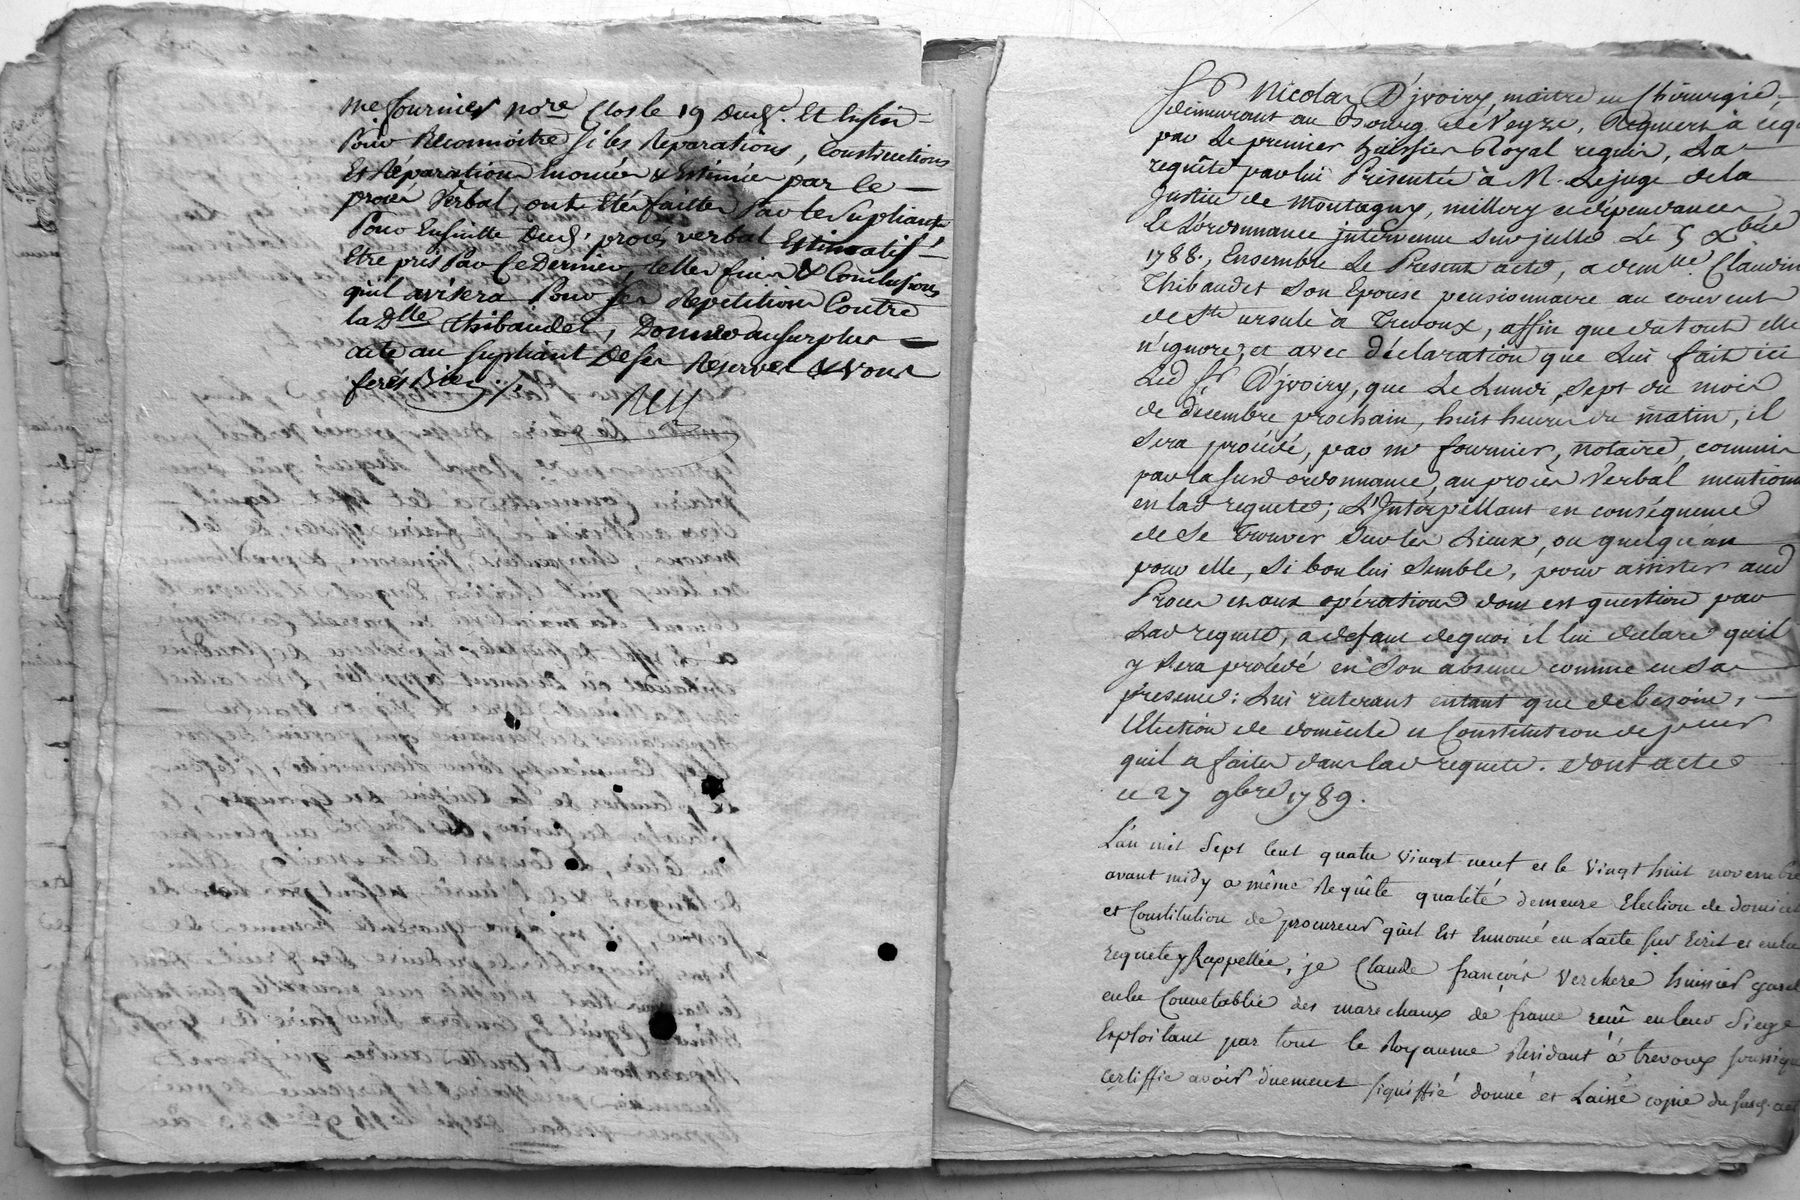 me. fournier nore. Clos le 19 Dud. Et Enfin
Pour Reconnoitre si les Reparations, Constructions
Et Réparations Enoncées & Estimées par le
procès Verbal, ont Eté faittes Par le Supliant
Pour Ensuitte Dud. procès verbal Estimatif
Etre pris Par Ce Dernier, telles fins & Conclusions
quil avisera Pour ses Repetitions Contre
la Dlle Thibaudet, Donner au surplus
acte au supliant De ses Reserves & vous
ferés Bien ./.
Sr Nicolas D'jvoiry, maitre en Chirurgie,
demeurant au Bourg de Neyze, Requiert à ce
par Le premier huissier Royal requis, La
requête par lui Présentée à M. Lejuge dela
Justice de Montagny, millery et dépendances
le L'ordonnance jntervenue sur jcelle Le 5 Xbre
1788., Ensemble Le Présent acte, a demlle. Claudine
Thibaudet son Epouse pensionnaire au couvent
de Ste ursule à Trevoux, affin que du tout elle
n'ignore, et avec déclaration que Lui fait ici
Led Sr D'jvoiry, que Le Lundi, sept du mois
de décembre prochain, huit heures du matin, il
sera procédé, par me fournier, notaire, commis
par la susd ordonnance, au procès Verbal mentionné
en lad requete; L'Interpellant en conséquence
de se trouver sur les Lieux, ou quelqu'un
pour elle, si bon lui semble, pour assister aud
Procès et aux opérations dont est question par
Lad requete, a defaut dequoi il lui declare quil
y sera procédé en son absence comme en sa
présence: Lui reiterant entant que debesoin,
Election de domicile et Constitution de procureur
quil a faites dans lad requete. dont acte
ce 27 9bre 1789.
L'an mil sept Cent quatre vingt neuf et le vingt huit novembre
avant midy a même Requête qualité demeure Election de domicile
et Constitution de procureur qu'il Est Ennoncé en L'acte sus Ecrit et en la
requete y Rappellée, je Claude françois Verchere huissier
en la Connetablie des marechaux de france reçu en leur siege
Exploitant par tout le Royaume Residant à trevoux
certiffie avoir duement signiffié donné et Laissé copie du susd. acte